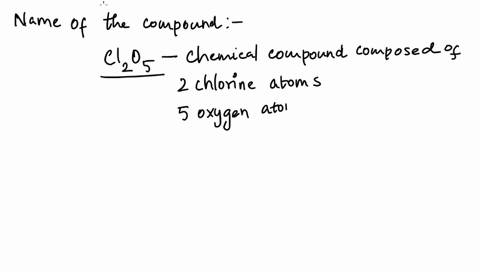 Name of the compound:-
Cl₂O₅ — chemical compound composed of
2 chlorine atoms
5 oxygen ato